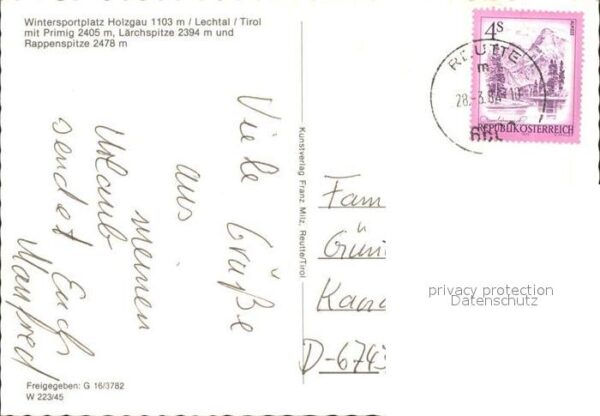 Wintersportplatz Holzgau 1103 m / Lechtal / Tirol
mit Primig 2405 m, Lärchspitze 2394 m und
Rappenspitze 2478 m
Viele Grüße
aus
meinen
Urlaub
sendet Euch
Manfred
Freigegeben: G 16/3782
W 223/45
Kunstverlag Franz Milz, Reutte/Tirol
4S
REPUBLIK ÖSTERREICH
REUTTE
28.-3.84-
Fam
Grün
D-6743
privacy protection
Datenschutz